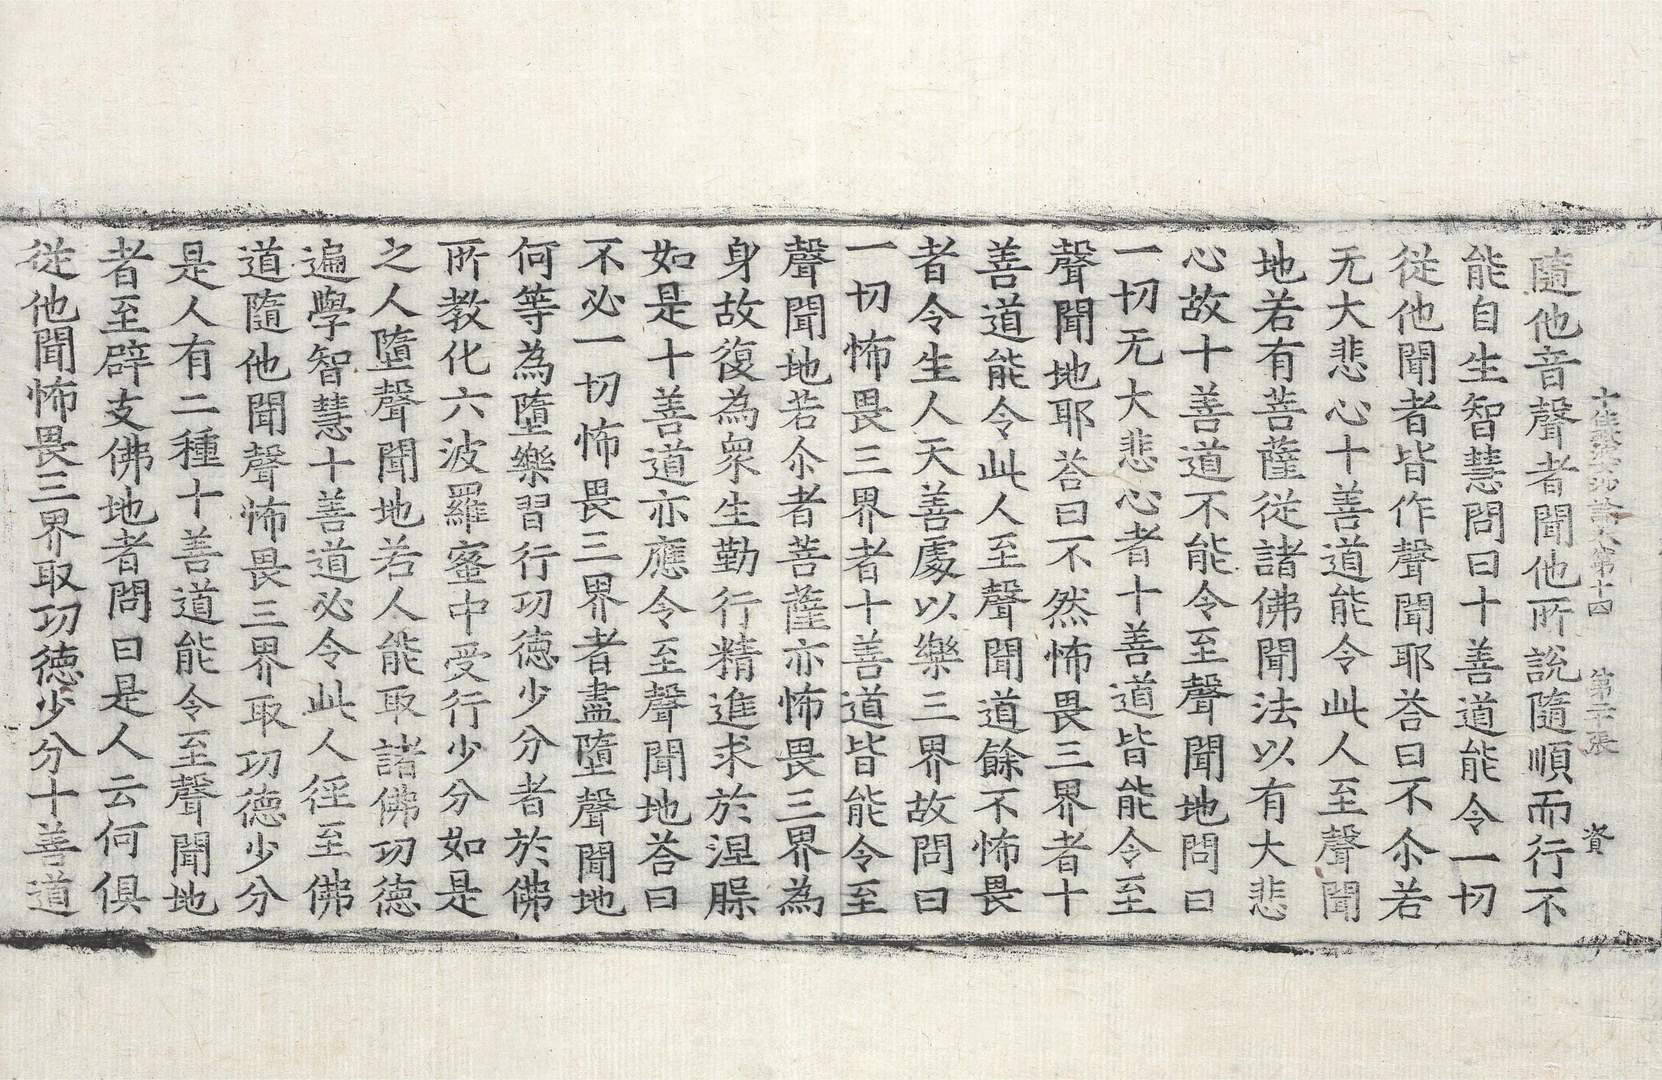 十住毗婆沙論卷第十四 第二十張 資
隨他音聲者聞他所說隨順而行不
能自生智慧問曰十善道能令一切
從他聞者皆作聲聞耶荅曰不尒若
无大悲心十善道能令此人至聲聞
地若有菩薩從諸佛聞法以有大悲
心故十善道不能令至聲聞地問曰
一切无大悲心者十善道皆能令至
聲聞地耶荅曰不然怖畏三界者十
善道能令此人至聲聞道餘不怖畏
者令生人天善處以樂三界故問曰
一切怖畏三界者十善道皆能令至
聲聞地若尒者菩薩亦怖畏三界為
身故復為衆生勤行精進求於涅槃
如是十善道亦應令至聲聞地荅曰
不必一切怖畏三界者盡墮聲聞地
何等為墮樂習行功德少分者於佛
所教化六波羅蜜中受行少分如是
之人墮聲聞地若人能取諸佛功德
遍學智慧十善道必令此人徑至佛
道隨他聞聲怖畏三界取功德少分
是人有二種十善道能令至聲聞地
者至辟支佛地者問曰是人云何俱
從他聞怖畏三界取功德少分十善道